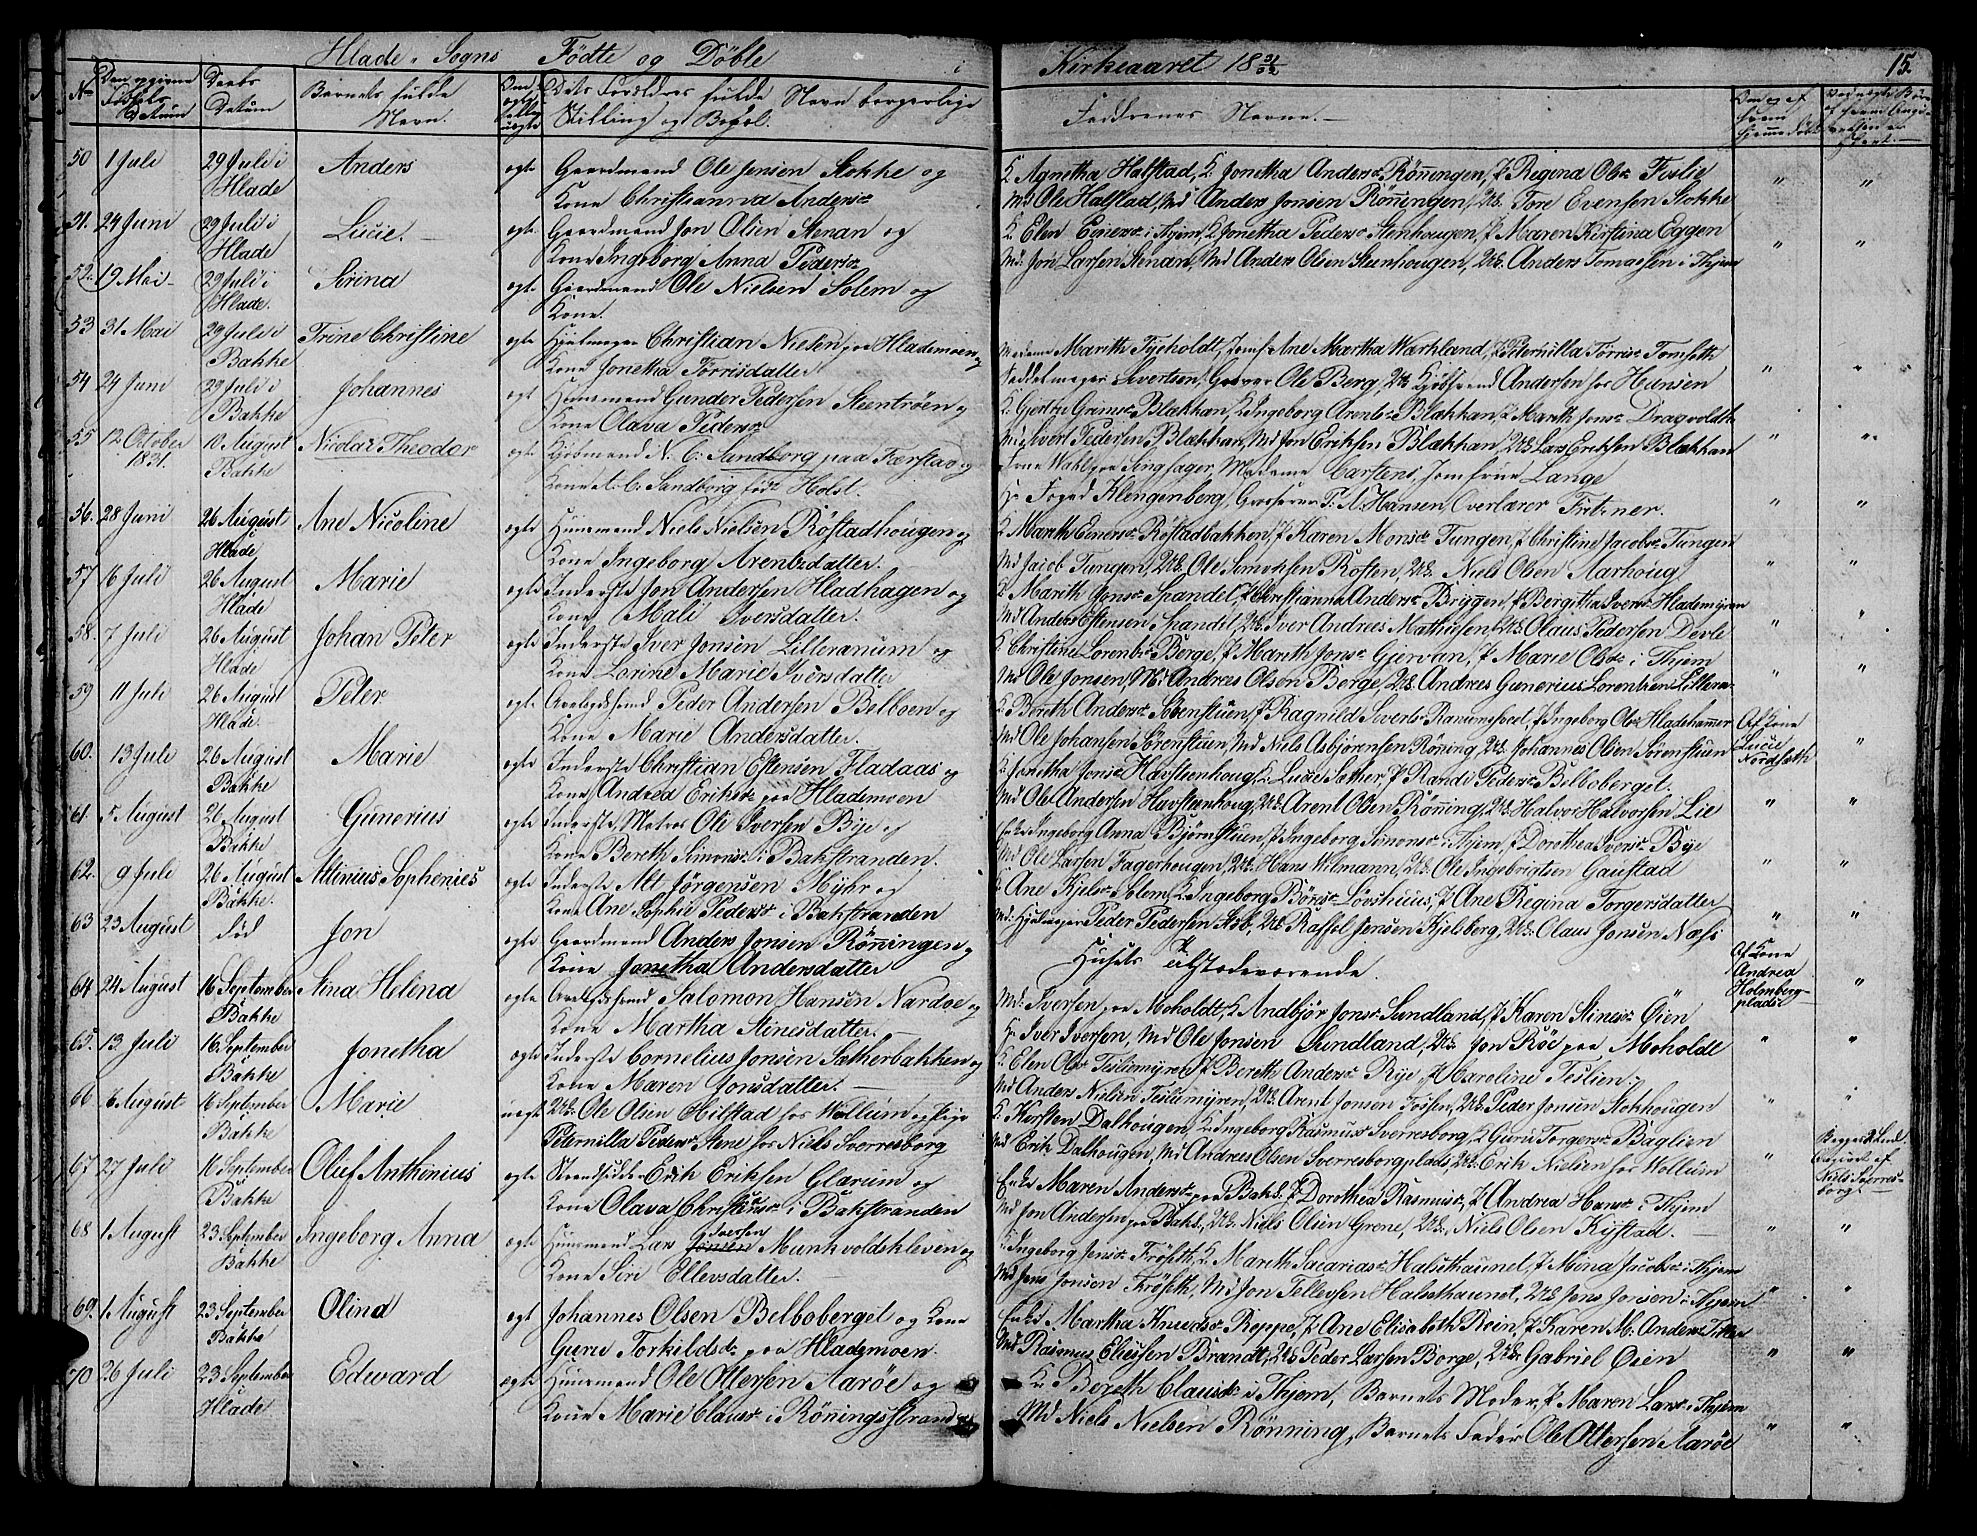 Hlade Sogns Födte og Döbte i Kirkeaaret 18 31/32 15.
No Den opgivne Födsels Datum Daabs Datum Barnets fulde Navn. Dets Forældres fulde Navn borgerlige Stilling og Bopel. Faddrenes Navne.
50 1 Juli 29 Juli i Hlade Anders egte Gaardmand Ole Jensen Stokke og
Kone Christianna Andersdr
K. Agnetha Halstad, K. Jonetha Andersdr Rönningen, P. Regina Olsdr Fislie
Md Ole Halstad, Md Anders Jonsen Rönningen, Uk. Tore Evensen Stokke
51. 24 Juni 29 Juli i Hlade Lucie. egte Gaardmand Jon Olsen Stenan og
Kone Ingeborg Anna Pedersdr
K. Elen Einersdr i Thjem, K. Jonetha Pedersdr Stenhougen, P. Maren Kirstina Eggen
Md. Jon Larsen Stenan, Md Anders Olsen Steenhougen, Uk. Anders Tomassen i Thjem
52. 19 Mai 29 Juli i Hlade. Serina egte Gaardmand Ole Nielsen Solem og
Kone.
53 31 Mai 29 Juli i Bakke Trine Christine egte Hjulmager Christian Nielsen paa Hlademoen og
Kone Jonetha Torrisdatter
Madame Marith Tyeholdt, Jomf. Ane Martha Warkland, P. Peternilla Torrisdr Tomseth
Sivertsen, Ole Berg, Uk. Andersen for Hansen
54 24 Juni 29 Juli i Bakke Johannes egt Huusmand Gunder Pedersen Steentröen og
Kone Olava Pedersdr
K. Gjertru Grimsdr Blækkan, K. Ingeborg Arentsdr Blakkan, P. Marith Jonsdr Dragvoldth
Md. Sivert Pedersen Blækkan, Md Jon Eriksen Blækkan, Uk. Lars Eriksen Blækkan
55 12 October 1831. 12 August Bakke Nicolai Theodor egte Kjöbmand N. C. Sandborg paa Færstad og
Kone A. C. Sandborg föd Holst.
Madame Carstens, Jomfrue Lange
Hr Foged Klengenberg, Grosserer P. A. Hansen, Overlærer Fritzner.
56. 28 Juni 26 August Hlade Ane Nicoline egte Huusmand Niels Nielsen Röstadhougen og
Kone Ingeborg Arentsdatter.
K. Marith Einersdr Röstadbakken, P. Karen Monsdr Tungen, P. Christine Jacobsdr Tungen
Md Jacob Tungen, Uk. Ole Simonsen Rosten, Uk. Niels Olsen Aarhoug
57 6 Juli 26 August Hlade Marie egte Inderste Jon Andersen Hladhagen og
Kone Mali Iversdatter.
K. Marith Jonsdr Spandel, K. Christianna Andersdr Bryggen, P. Bergitha Iversdr Hlademyren
Md Anders Estensen Spandel, Uk. Iver Andreas Mathisen, Uk. Olaus Pedersen Devle
58. 7 Juli 26 August Hlade Johan Peter egte Inderste Iver Jonsen Lilleranum og
Kone Lorine Marie Iversdatter
K. Christine Lorentsdr Berge, P. Marith Jonsdr Gjervan, P. Marie Olsdr i Thjem
Md Ole Jonsen, Md Andreas Olson Berge, Uk. Andreas Gunerius Lorentzen Lillera-
59 11 Juli 26 August Hlade. Peter egte Arbeidsmand Peder Andersen Belboen og
Kone Marie Andersdatter.
K. Bereth Andersdr Sörenstuen, P. Ragnild Sivertsdr Ranumsbret, P. Ingeborg Olsdr Hladehammer
Md Ole Johansen Sörenstuen, Md Niels Asbjörensen Röning, Uk. Johannes Olsen Sörenstuen
Af Kone Lucie Nordsæth
60. 13 Juli 26 August Bakke Marie egte Inderste Christian Estensen Fladaas og
Kone Andrea Eriksdr paa Hlademoen
K. Jonetha Jonsdr Havsteenhoug, K. Lucie Sæther, P. Randi Pedersdr Belboberget.
Md Ole Andersen Havsteenhoug, Uk. Arent Olsen Rönning, Uk. Halvor Halvorsen Lie
61. 5 August 26 August Bakke Gunerius egte Inderste, Matros Ole Iversen Bye og
Kone Bereth Simonsdr i Bakstranden.
Enke Ingeborg Anna Björnstuen, P. Ingeborg Simonsdr i Thjem, P. Dorothea Iversdr Bye
Md Ole Larsen Fagerhougen, Uk. Hans Wilmann, Uk. Ole Ingebrigtsen Gaustad
62. 9 Juli 26 August Bakke. Altinius Sophenies egte Inderste Alt Jörgensen Myhr og
Kone Ane Sophie Pedersdr i Bakstranden
K. Ane Kjelsdr Solem, K. Ingeborg Börresdr Lövshuus, P. Ane Regina Torgersdatter
Md. Hjulmager Peder Pedersen Stok, Uk. Raffel Jensen Kjelsberg, Uk. Olaus Jonsen Næss
63 23 August död Jon egte Gaardmand Anders Jonsen Rönningen og
Kone Jonetha Andersdatter
Husets Tilstedeværende.
Af Kone Andrea Holmberg- plads.
64 24 August 16 September Bakke Stina Helena egte Arbeidsmand Salomon Hansen Nardoe og
Kone Martha Stinesdatter.
Md. Iversen paa Moholdt, K. Andbjör Jonsdr Sundland, P. Karen Stinesdr Öien
Hr Iver Iversen, Md Ole Jonsen Sundland, Uk. Jon Röe paa Moholdt
65. 13. Juli 16 September Bakke Jonetha egte Inderste Cornelius Jonsen Sætherbakken og
Kone Maren Jonsdatter.
K. Elen Olsdr Tesliemyren, P. Bereth Andersdr Rye, P. Maroline Teslien.
Md Anders Nielsen Tesliemyren, Uk. Arent Jonsen Fossen, Uk. Peder Jonsen Stokhougen
66 6 August 16 September Bakke Marie uegte Uk. Ole Olsen Hilstad for Wollum og Pige
Peternilla Pedersdr Stene for Niels Sverresborg
K. Karsten Dalhougen, K. Ingeborg Rasmusdr Sverresborg, P. Guru Torgersdr Baglien
Md Erik Dalhougen, Md Andreas Olsen Sverresborgplads, Uk. Erik Nielsen for Wollum
Begges 2. Leie. Opgivet af Niels Sverres- borg.
67 27 Juli 16 September Bakke Oluf Anthonius egte Strandsidder Erik Eriksen Glærum og
Kone Olava Christiansdr i Bakstranden
Enke Maren Andersdr paa Bakl. P. Dorothea Rasmusdr, P. Andrea Hansdr i Thjem
Md Jon Andersen paa Bakl. Uk. Niels Olsen Grene, Uk. Niels Olsen Kystad.
68 1 August 23 September Bakke Ingeborg Anna egte Huusmand Lars Iversen Munkvoldskleven og
Kone Siri Ellevsdatter.
K. Ingeborg Jensdr Fröseth, K. Mareth Sacariasdr Halsethaunet, P. Mina Jacobsdr i Thjem
Md Jens Jonsen Fröseth, Md Jon Tellefsen Halsethaunet, Uk. Jens Jonsen i Thjem
69. 1 August 23 September Bakke Olina egt Johannes Olsen Belboberget og Kone
Guru Torkildsdr paa Hlademoen.
Enke Martha Knudsdr Reppe, P. Ane Elisabeth Rein, P. Karen M. Andersdr Tiller
Md Rasmus Eliesen Brandt, Uk. Peder Larsen Borge, Uk. Gabriel Öien
70 26 Juli 23 September Hlade Edward egte Huusmand Ole Ottersen Aaröe og
Kone Marie Clausdr i Röningsstrand
K. Bereth Clausdr i Thjem, Barnets Moder, P. Maren Larsdr i Thjem
Md Niels Nielsen Rönning, Barnets Fader Ole Ottersen Aaröe